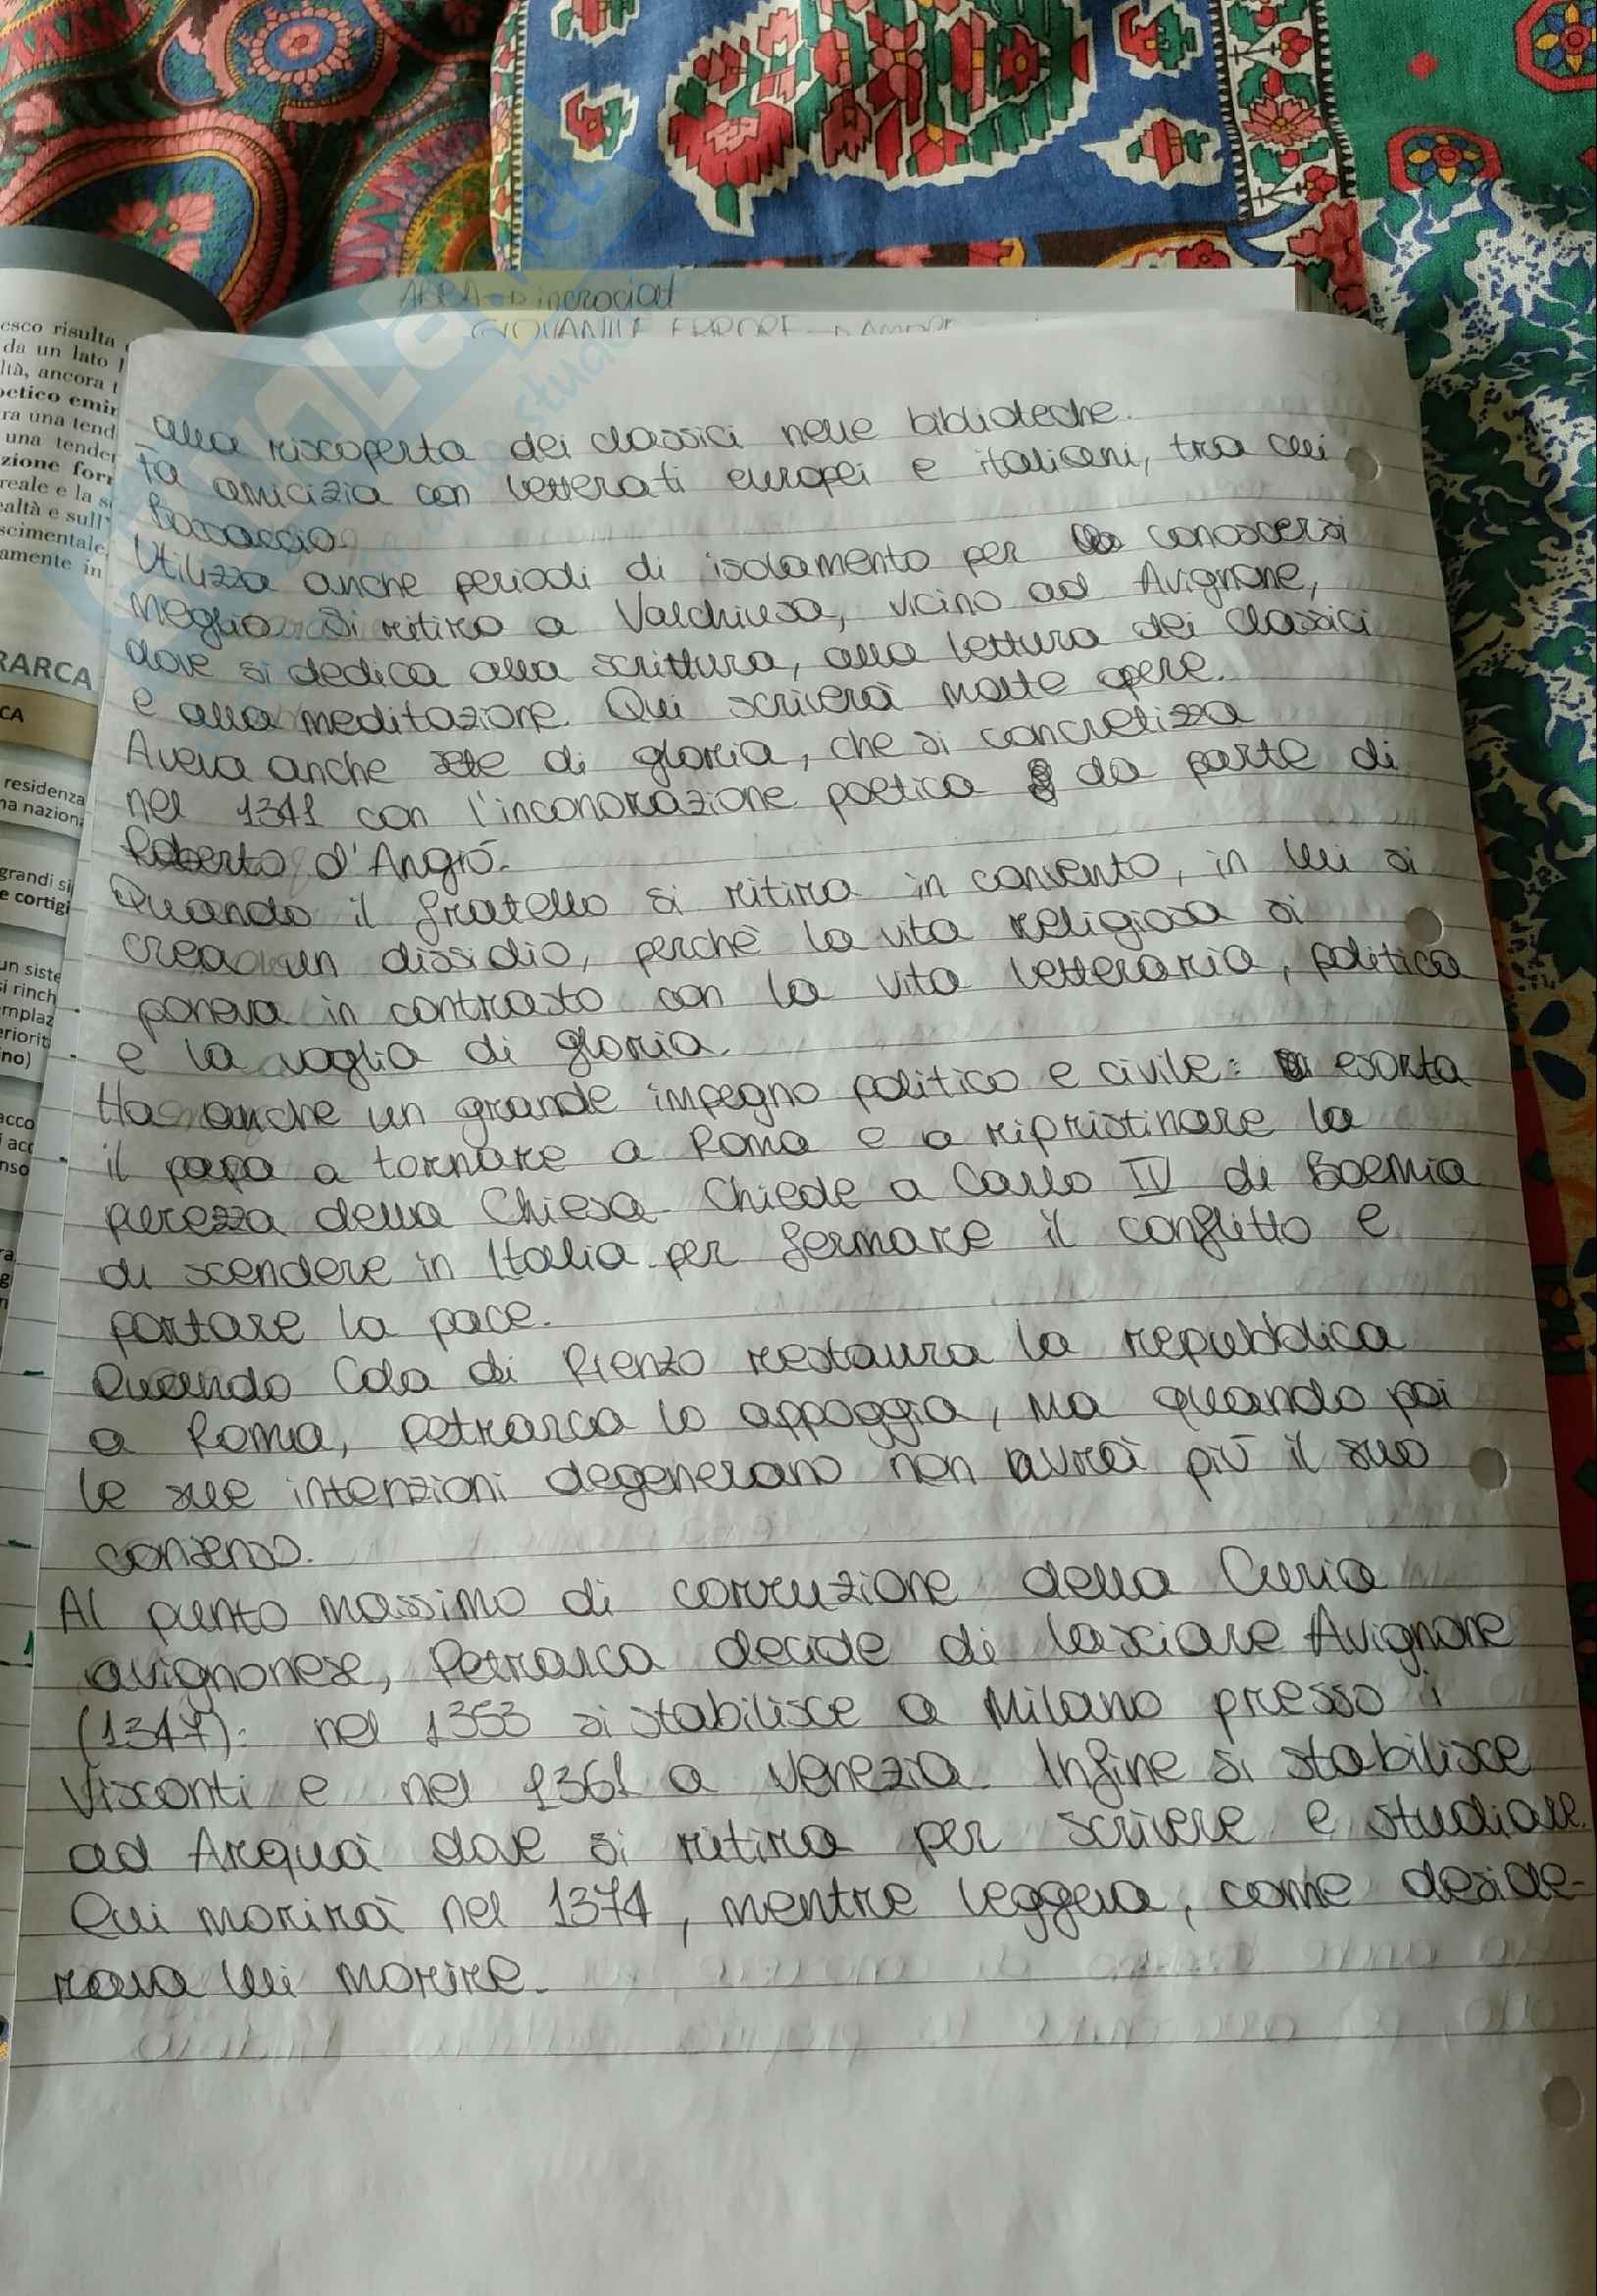 ABBA → incrociat
GIOVANILE ERRORE → AMOR
esco risulta
da un lato
ltà, ancora t
oetico emin
ra una tend
una tender
zione forn
reale e la s
ealtà e sull'
scimentale,
amente in
RARCA
CA
residenza
na naziona
grandi si
e cortigi
un siste
si rinch
mplaz
eriorit
no)
acco
i acc
nso
alla riscoperta dei classici nelle biblioteche.
Fa amicizia con letterati europei e italiani, tra cui
Boccaccio.
Utilizza anche periodi di isolamento per conoscersi
meglio. Si ritira a Valchiusa, vicino ad Avignone,
dove si dedica alla scrittura, alla lettura dei classici
e alla meditazione. Qui scriverà molte opere.
Aveva anche sete di gloria, che si concretizza
nel 1341 con l'inconorazione poetica da parte di
Roberto d'Angiò.
Quando il fratello si ritira in convento, in lui si
crea un dissidio, perché la vita religiosa si
poneva in contrasto con la vita letteraria, politica
e la voglia di gloria.
Ha anche un grande impegno politico e civile: esorta
il papa a tornare a Roma e a ripristinare la
purezza della Chiesa. Chiede a Carlo IV di Boemia
di scendere in Italia per fermare il conflitto e
portare la pace.
Quando Cola di Rienzo restaura la repubblica
a Roma, Petrarca lo appoggia, ma quando poi
le sue intenzioni degenerano non avrà più il suo
consenso.
Al punto massimo di corruzione della Curia
avignonese, Petrarca decide di lasciare Avignone
(1347): nel 1353 si stabilisce a Milano presso i
Visconti e nel 1361 a Venezia. Infine si stabilisce
ad Arquà dove si ritira per scrivere e studiare.
Qui morirà nel 1374, mentre leggeva, come deside-
rava lui morire.